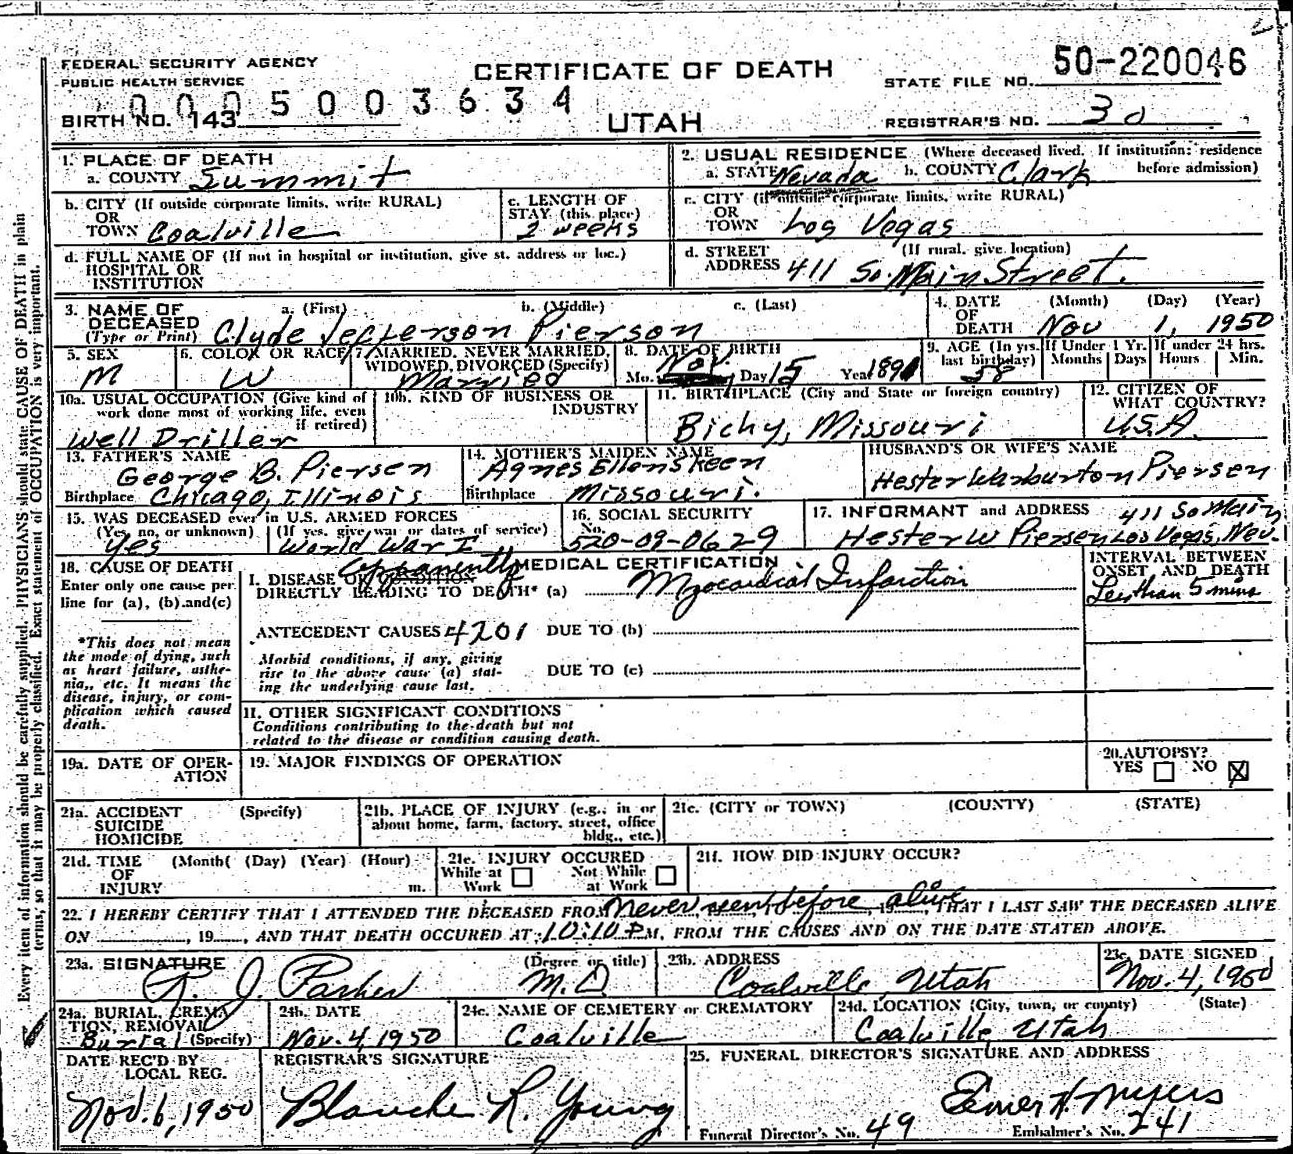 FEDERAL SECURITY AGENCY
PUBLIC HEALTH SERVICE
CERTIFICATE OF DEATH
UTAH
STATE FILE NO. 50-220046
0005003634
BIRTH NO. 143
REGISTRAR'S NO. 30
1. PLACE OF DEATH
a. COUNTY Summit
2. USUAL RESIDENCE (Where deceased lived. If institution: residence before admission)
a. STATE Nevada b. COUNTY Clark
b. CITY (If outside corporate limits, write RURAL)
OR
TOWN Coalville
c. LENGTH OF
STAY (this place)
2 weeks
c. CITY (if outside corporate limits, write RURAL)
OR
TOWN Los Vegas
d. FULL NAME OF (If not in hospital or institution, give st. address or loc.)
HOSPITAL OR
INSTITUTION
d. STREET (If rural, give location)
ADDRESS 411 So. Main Street.
3. NAME OF DECEASED (Type or Print)
a. (First) b. (Middle) c. (Last)
Clyde Jefferson Pierson
4. DATE OF DEATH (Month) (Day) (Year)
Nov 1, 1950
5. SEX
M
6. COLOR OR RACE
W
7. MARRIED, NEVER MARRIED,
WIDOWED, DIVORCED (Specify)
Married
8. DATE OF BIRTH
Mo. Nov Day 15 Year 1891
9. AGE (In yrs. last birthday)
58
If Under 1 Yr. Months Days
If under 24 hrs. Hours Min.
10a. USUAL OCCUPATION (Give kind of
work done most of working life, even
if retired)
Well Driller
10b. KIND OF BUSINESS OR
INDUSTRY
11. BIRTHPLACE (City and State or foreign country)
Bichy, Missouri
12. CITIZEN OF
WHAT COUNTRY?
U.S.A.
13. FATHER'S NAME
George B. Piersen
Birthplace Chicago, Illinois
14. MOTHER'S MAIDEN NAME
Agnes Ellen Skeen
Birthplace Missouri.
HUSBAND'S OR WIFE'S NAME
Hester Warburton Piersen
15. WAS DECEASED ever in U.S. ARMED FORCES
(Yes, no, or unknown) (If yes, give war or dates of service)
Yes World War I
16. SOCIAL SECURITY
No.
520-09-0629
17. INFORMANT and ADDRESS 411 So Main
Hester W Piersen Los Vegas, Nev.
18. CAUSE OF DEATH
Enter only one cause per
line for (a), (b) and (c)
*This does not mean
the mode of dying, such
as heart failure, asthe-
nia, etc. It means the
disease, injury, or com-
plication which caused
death.
MEDICAL CERTIFICATION
Apparently
I. DISEASE OR CONDITION
DIRECTLY LEADING TO DEATH* (a) Myocardial Infarction
INTERVAL BETWEEN
ONSET AND DEATH
Less than 5 mins
ANTECEDENT CAUSES 4201 DUE TO (b)
Morbid conditions, if any, giving
rise to the above cause (a) stat-
ing the underlying cause last.
DUE TO (c)
II. OTHER SIGNIFICANT CONDITIONS
Conditions contributing to the death but not
related to the disease or condition causing death.
19a. DATE OF OPER-
ATION
19. MAJOR FINDINGS OF OPERATION
20. AUTOPSY?
YES ☐ NO ☒
21a. ACCIDENT (Specify)
SUICIDE
HOMICIDE
21b. PLACE OF INJURY (e.g., in or
about home, farm, factory, street, office
bldg., etc.)
21c. (CITY or TOWN) (COUNTY) (STATE)
21d. TIME (Month( (Day) (Year) (Hour)
OF
INJURY m.
21e. INJURY OCCURED
While at Work ☐ Not While at Work ☐
21f. HOW DID INJURY OCCUR?
22. I HEREBY CERTIFY THAT I ATTENDED THE DECEASED FROM Never seen before alive, 19, THAT I LAST SAW THE DECEASED ALIVE
ON , 19, AND THAT DEATH OCCURED AT 10:10 P M, FROM THE CAUSES AND ON THE DATE STATED ABOVE.
23a. SIGNATURE (Degree or title)
R. J. Parker M.D.
23b. ADDRESS
Coalville, Utah
23c. DATE SIGNED
Nov. 4, 1950
24a. BURIAL, CREMA
TION, REMOVAL
Burial (Specify)
24b. DATE
Nov. 4, 1950
24c. NAME OF CEMETERY or CREMATORY
Coalville
24d. LOCATION (City, town, or county) (State)
Coalville, Utah
DATE REC'D BY
LOCAL REG.
Nov. 6, 1950
REGISTRAR'S SIGNATURE
Blanche R. Young
25. FUNERAL DIRECTOR'S SIGNATURE AND ADDRESS
Myers
Funeral Director's No. 49 Embalmer's No. 241
Every item of information should be carefully supplied. PHYSICIANS should state CAUSE OF DEATH in plain
terms, so that it may be properly classified. Exact statement of OCCUPATION is very important.